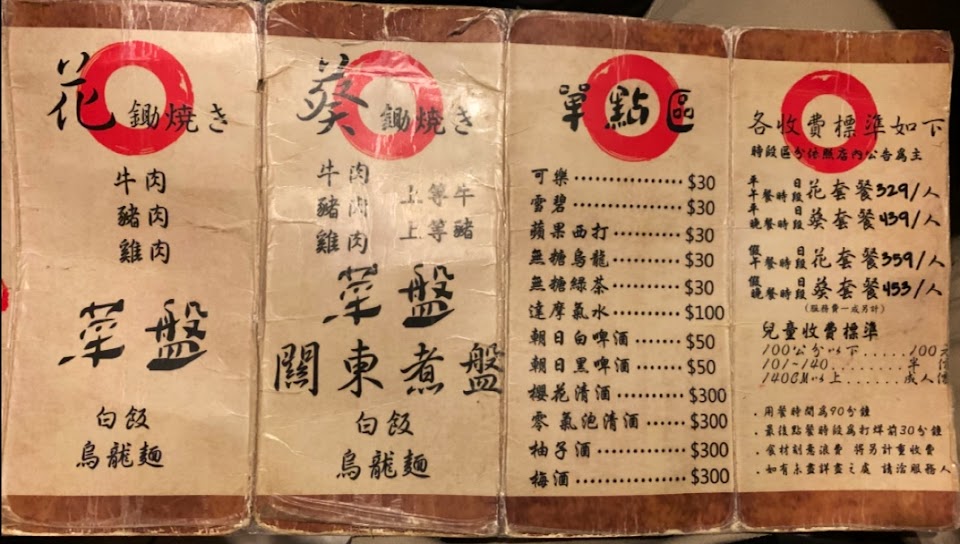 花 鋤焼き
牛肉
豬肉
雞肉
菜盤
白飯
烏龍麵
葵 鋤焼き
牛肉 上等牛
豬肉 上等豬
雞肉
菜盤
關東煮盤
白飯
烏龍麵
單點區
可樂 $30
雪碧 $30
蘋果西打 $30
無糖烏龍 $30
無糖綠茶 $30
達摩氣水 $100
朝日白啤酒 $50
朝日黑啤酒 $50
櫻花清酒 $300
零氣泡清酒 $300
柚子酒 $300
梅酒 $300
各收費標準如下
時段區分依照店內公告為主
平日
午餐時段 花套餐329/人
平日
晚餐時段 葵套餐439/人
假日
午餐時段 花套餐359/人
假日
晚餐時段 葵套餐453/人
(服務費一成另計)
兒童收費標準
100公分以下......100元
101~140........半價
140CM以上......成人價
.用餐時間為90分鐘
.最後點餐時段為打烊前30分鐘
.食材刻意浪費 將另計重收費
.如有未盡詳盡之處 請洽服務人